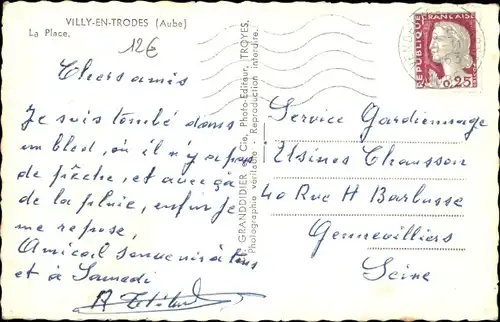 VILLY-EN-TRODES (Aube)
La Place.
12€
Chers amis
Je suis tombé dans
un bled, où il n'y a pas
de pêche, et avec ça
de la pluie, enfin je
me repose,
Amical souvenir à tous
et à Samedi
GRANDDIDIER & Cie, Photo-Editeur, TROYES,
Photographie véritable - Reproduction interdite.
REPUBLIQUE FRANÇAISE
0,25
Service Gardiennage
Usines Chausson
40 Rue H Barbusse
Gennevilliers
Seine